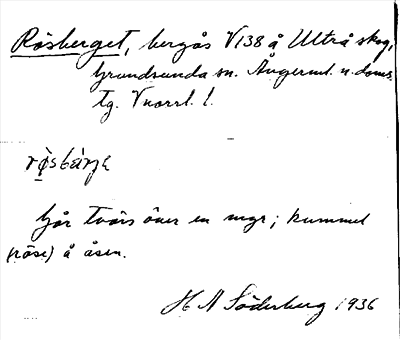 Rösberget, bergås V138 å Ultrå skog,
Grundsunda sn. Ångerml. n. doms.
tg. Vnorrl. l.
rö̀sbärjɛ
Går tvärs över en myr; kummel
(röse) å åsen.
H A Söderberg 1936